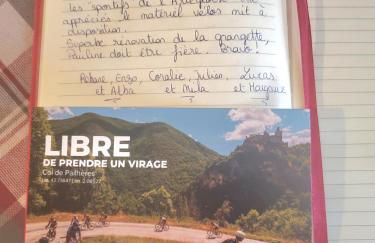 les sportifs de l'Arieghoix ont
appréciés le matériel vélos mit à
disposition.
Superbe rénovation de la grangette,
Pauline doit être fière. Bravo !
Pehane, Enzo, Coralie, Julien, Lucas
et Alba et Mila et Margaux
LIBRE
DE PRENDRE UN VIRAGE
Col de Pailhères